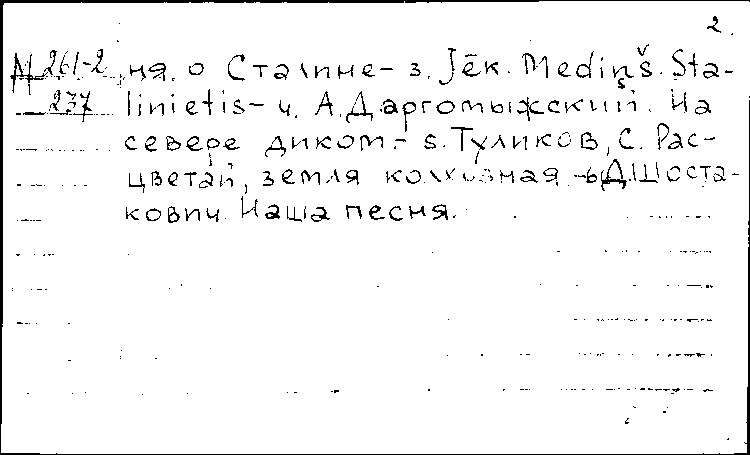 2.
M 261-2 ня. о Сталине - 3. Jēk. Mediņš. Sta-
237 linietis - 4. А. Даргомыжский. На
севере диком. - 5. Туликов, С. Рас-
цветай, земля колхозная - 6 Д. Шоста-
кович. Наша песня.